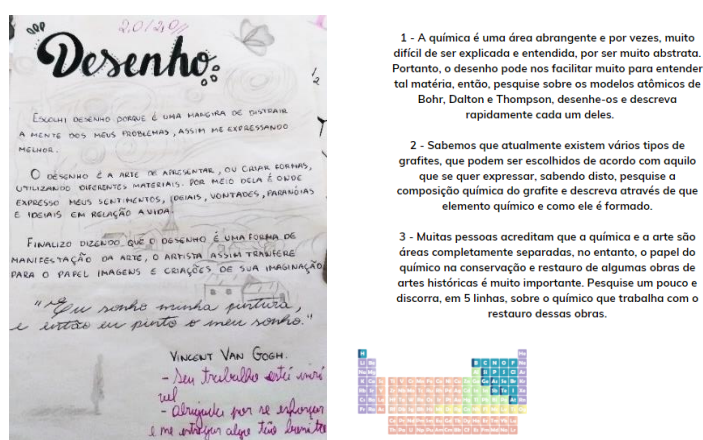 2,0/2,0
Desenho
Escolhi desenho porque é uma maneira de distrair
a mente dos meus problemas, assim me expressando
melhor.
O desenho é a arte de apresentar, ou criar formas,
utilizando diferentes materiais. Por meio dela é onde
expresso meus sentimentos, ideiais, vontades, paranóias
e ideiais em relação a vida.
Finalizo dizendo que o desenho é uma forma de
manifestação da arte, o artista assim tranfere
para o papel imagens e criações de sua imaginação
"Eu sonho minha pintura,
e então eu pinto o meu sonho."
Vincent Van Gogh.
- Seu trabalho está incrí
vel
- Obrigada por se esforçar
e me entregar algo tão bonito
1 - A química é uma área abrangente e por vezes, muito
difícil de ser explicada e entendida, por ser muito abstrata.
Portanto, o desenho pode nos facilitar muito para entender
tal matéria, então, pesquise sobre os modelos atômicos de
Bohr, Dalton e Thompson, desenhe-os e descreva
rapidamente cada um deles.
2 - Sabemos que atualmente existem vários tipos de
grafites, que podem ser escolhidos de acordo com aquilo
que se quer expressar, sabendo disto, pesquise a
composição química do grafite e descreva através de que
elemento químico e como ele é formado.
3 - Muitas pessoas acreditam que a química e a arte são
áreas completamente separadas, no entanto, o papel do
químico na conservação e restauro de algumas obras de
artes históricas é muito importante. Pesquise um pouco e
discorra, em 5 linhas, sobre o químico que trabalha com o
restauro dessas obras.